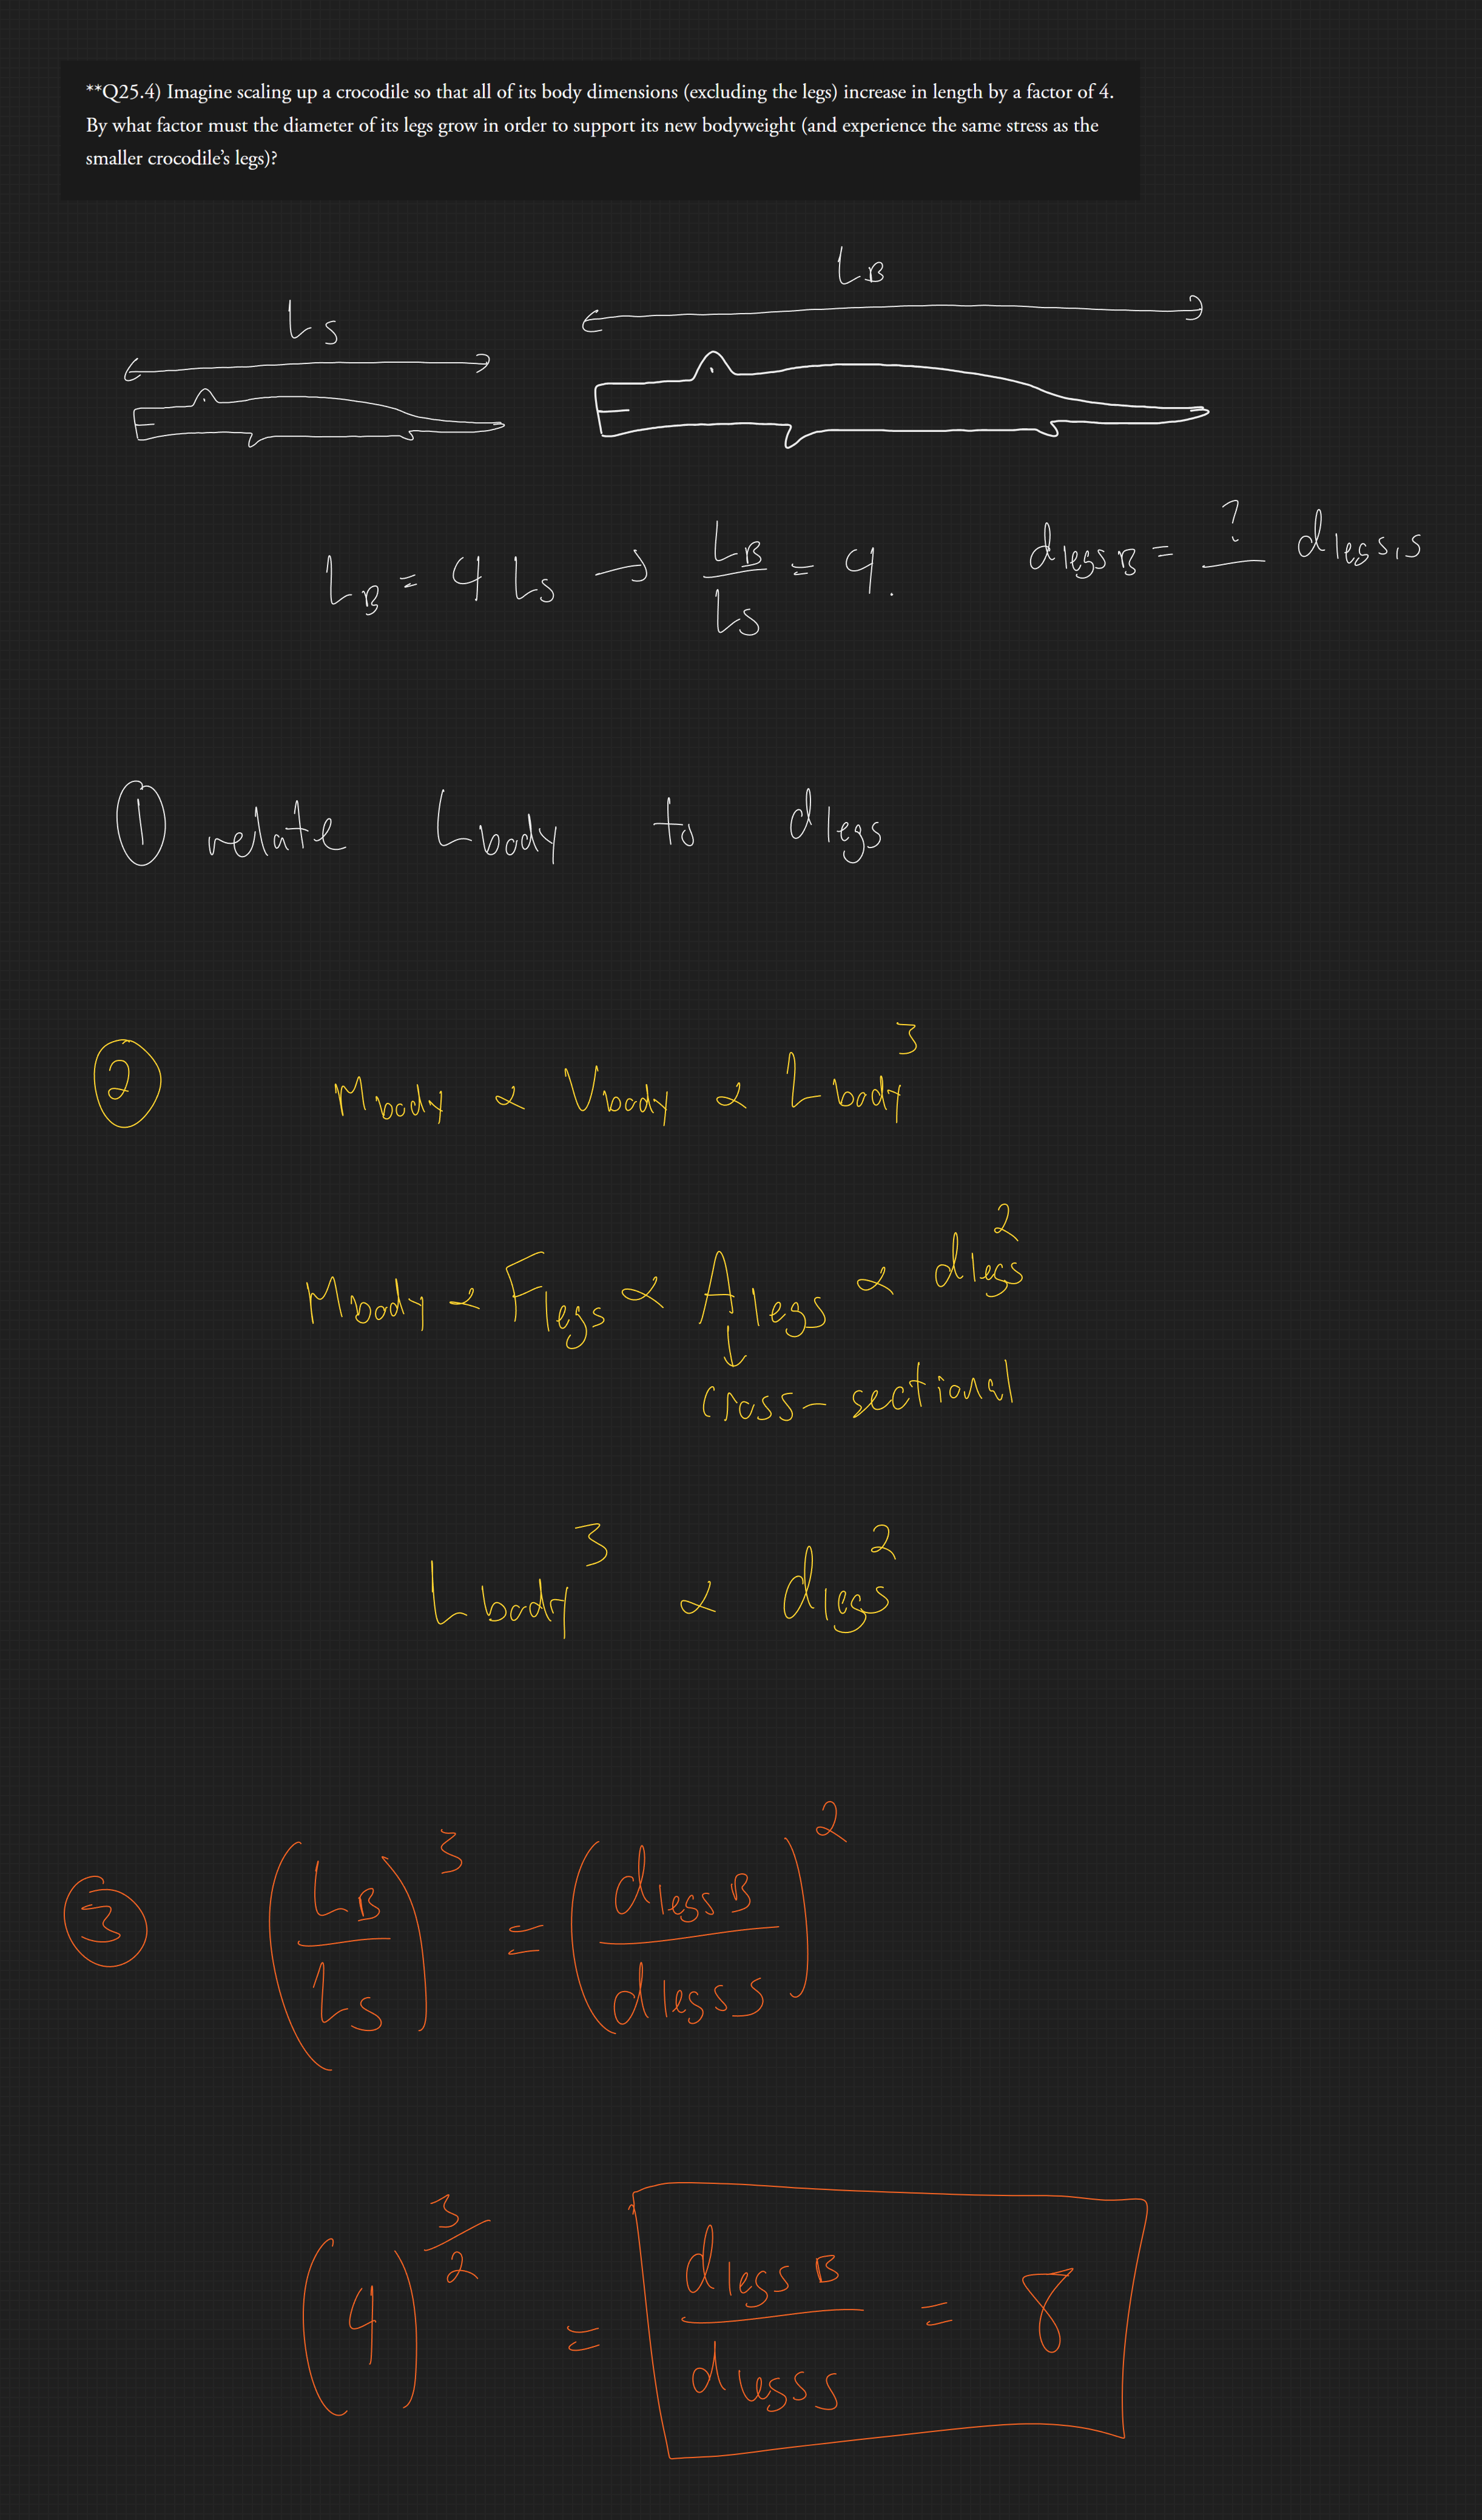 **Q25.4) Imagine scaling up a crocodile so that all of its body dimensions (excluding the legs) increase in length by a factor of 4.
By what factor must the diameter of its legs grow in order to support its new bodyweight (and experience the same stress as the
smaller crocodile's legs)?
L_S
L_B
L_B = 4 L_S → L_B / L_S = 4.
d_legs B = ? d_legs, S
① relate L_body to d_legs
② M_body ∝ V_body ∝ L_body^3
M_body ∝ F_legs ∝ A_legs ∝ d_legs^2
↓
cross-sectional
L_body^3 ∝ d_legs^2
③ (L_B / L_S)^3 = (d_legs B / d_legs S)^2
(4)^(3/2) = d_legs B / d_legs S = 8